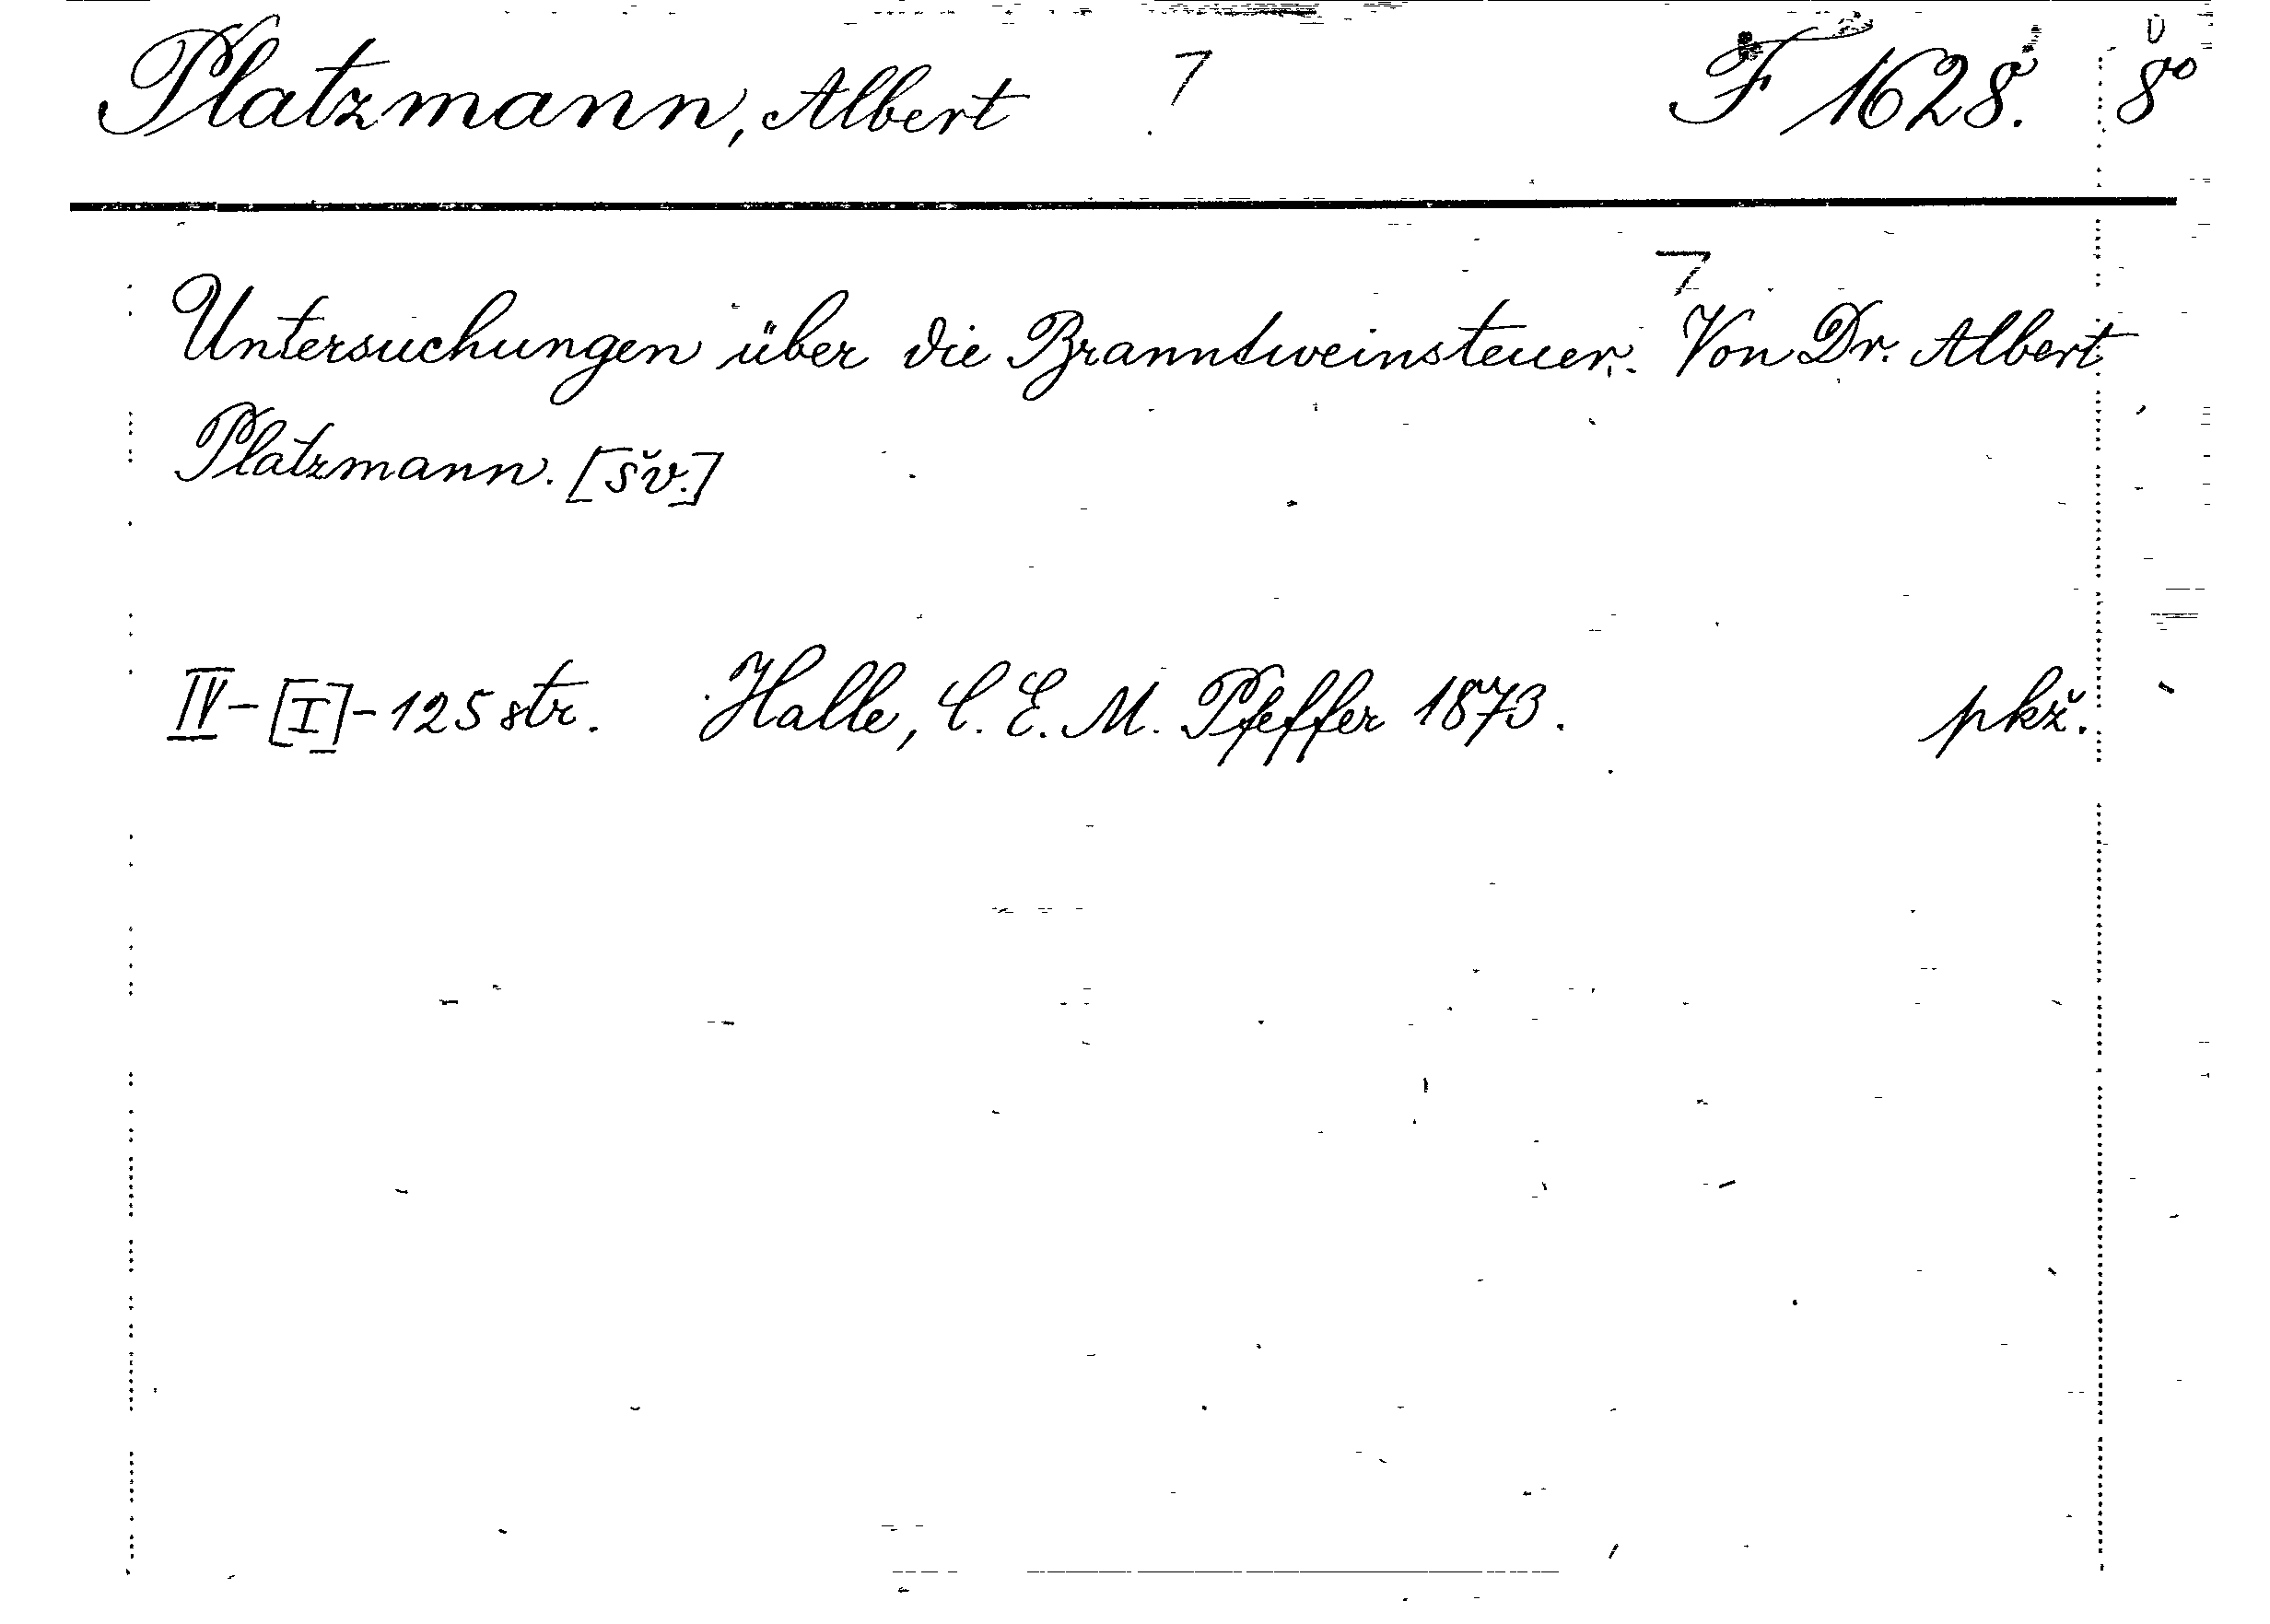 Platzmann, Albert 7 F 1628. 8º
Untersuchungen über die Branntweinsteuer. Von Dr. Albert
Platzmann. [šv.]
IV-[I]-125 str. Halle, C. E. M. Pfeffer 1873. pkž.